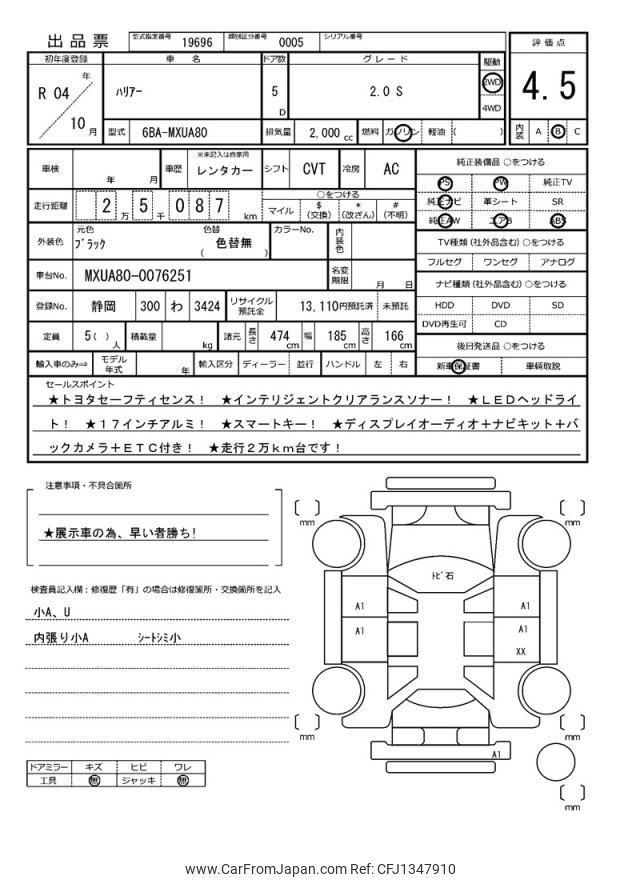 出品票 型式指定番号 19696 類別区分番号 0005 シリアル番号
初年度登録 車名 ドア数 グレード 駆動 評価点
R 04 年 10 月 ﾊﾘｱｰ 5 D 2.0 S 2WD 4WD 4.5
型式 6BA-MXUA80 排気量 2,000 cc 燃料 ガソリン 軽油 ( ) 内装 A B C
車検 年 月 車歴 ※未記入は自家用 レンタカー シフト CVT 冷房 AC 純正装備品 ○をつける
PS PW 純正TV
走行距離 2 万 5 千 0 8 7 km ○をつける 純正ナビ 革シート SR
マイル $ (交換) * (改ざん) # (不明) 純正AW エアB ABS
外装色 元色 ﾌﾞﾗｯｸ 色替 ( 色替無 ) カラーNo. 内装色 TV種類 (社外品含む) ○をつける
フルセグ ワンセグ アナログ
車台No. MXUA80-0076251 名変期限 月 日 ナビ種類 (社外品含む) ○をつける
登録No. 静岡 300 わ 3424 リサイクル預託金 13,110円預託済 未預託 HDD DVD SD
DVD再生可 CD
定員 5( ) 人 積載量 kg 諸元 長さ 474 cm 幅 185 cm 高さ 166 cm 後日発送品 ○をつける
輸入車のみ⇒ モデル年式 年 輸入区分 ディーラー 並行 ハンドル 左 右 新車保証書 車輌取説
セールスポイント
★トヨタセーフティセンス! ★インテリジェントクリアランスソナー! ★LEDヘッドライ
ト! ★17インチアルミ! ★スマートキー! ★ディスプレイオーディオ+ナビキット+バ
ックカメラ+ETC付き! ★走行2万km台です!
注意事項・不具合箇所
★展示車の為、早い者勝ち!
検査員記入欄:修復歴「有」の場合は修復箇所・交換箇所を記入
小A、U
内張り小A ｼｰﾄｼﾐ小
ドアミラー キズ ヒビ ワレ
工具 無 ジャッキ 無
mm mm
ﾄﾋﾞ石
A1 A1
A1 A1
XX
mm mm
A1
mm
www.CarFromJapan.com Ref: CFJ1347910